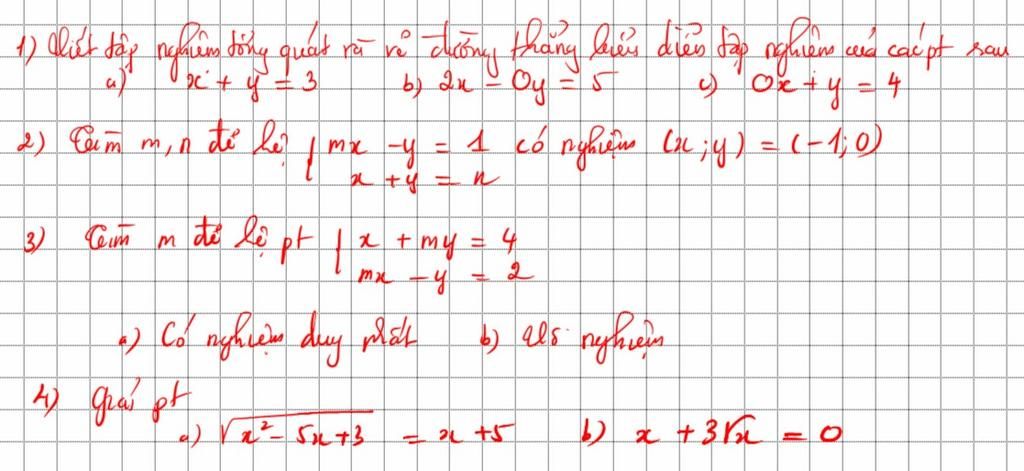 1) Viết tập nghiệm tổng quát và vẽ đường thẳng biểu diễn tập nghiệm của các pt sau
a) x + y = 3 b) 2x - 0y = 5 c) 0x + y = 4
2) Tìm m, n để hệ { mx - y = 1 có nghiệm (x; y) = (-1; 0)
x + y = n
3) Tìm m để hệ pt { x + my = 4
mx - y = 2
a) Có nghiệm duy nhất b) Vô nghiệm
4) Giải pt
a) √x² - 5x + 3 = x + 5 b) x + 3√x = 0